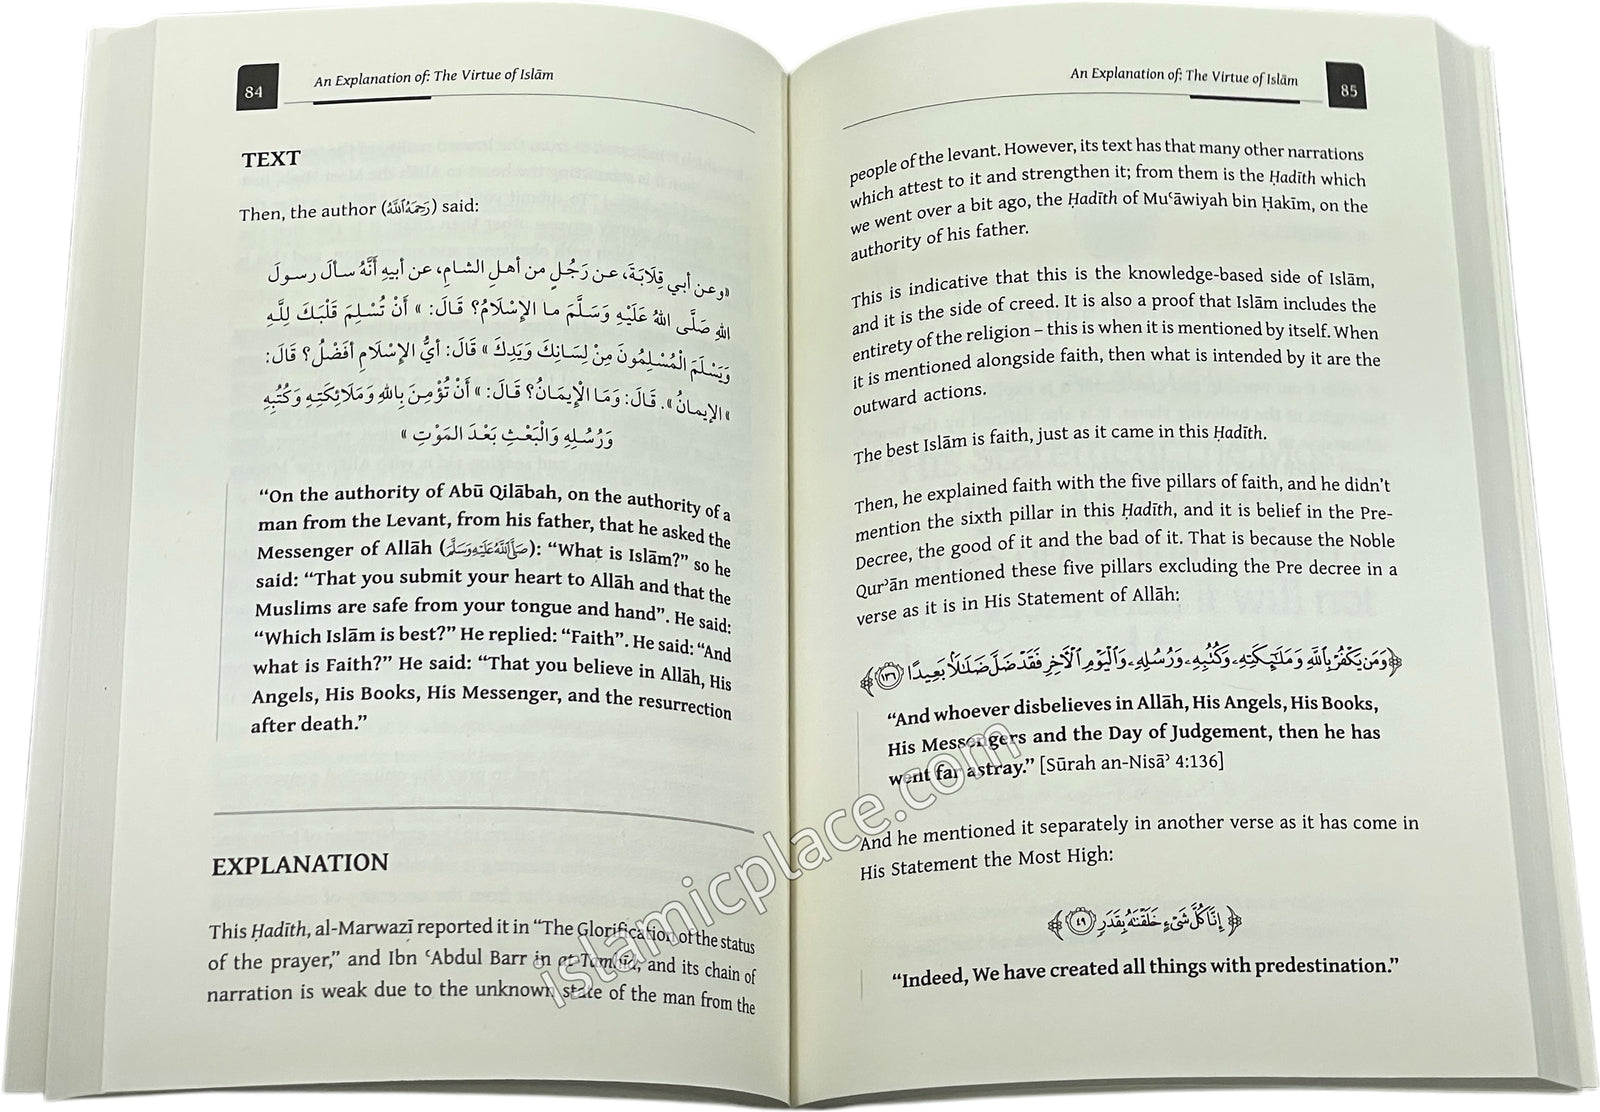 84
An Explanation of: The Virtue of Islām
TEXT
Then, the author (رَحِمَهُ ٱللَّهُ) said:
«وعن أبي قِلَابَةَ، عن رَجُلٍ من أهلِ الشامِ، عن أبيهِ أنَّهُ سألَ رسولَ
اللهِ صَلَّى اللهُ عَلَيْهِ وَسَلَّمَ ما الإِسْلَامُ؟ قَالَ: » أَنْ تُسْلِمَ قَلْبَكَ لِلَّهِ
وَيَسْلَمَ الْمُسْلِمُونَ مِنْ لِسَانِكَ وَيَدِكَ » قَالَ: أيُّ الإِسْلَامِ أفْضَلُ؟ قَالَ:
»الإيمانُ». قَالَ: وَمَا الْإِيمَانُ؟ قَالَ: » أَنْ تُؤْمِنَ بِاللهِ وَمَلَائِكَتِهِ وَكُتُبِهِ
وَرُسُلِهِ وَالْبَعْثِ بَعْدَ المَوْتِ »
“On the authority of Abū Qilābah, on the authority of a
man from the Levant, from his father, that he asked the
Messenger of Allāh (صَلَّى ٱللَّهُ عَلَيْهِ وَسَلَّمَ): “What is Islām?” so he
said: “That you submit your heart to Allāh and that the
Muslims are safe from your tongue and hand”. He said:
“Which Islām is best?” He replied: “Faith”. He said: “And
what is Faith?” He said: “That you believe in Allāh, His
Angels, His Books, His Messenger, and the resurrection
after death.”
EXPLANATION
This Ḥadīth, al-Marwazī reported it in “The Glorification of the status
of the prayer,” and Ibn ʿAbdul Barr in at-Tamhīd, and its chain of
narration is weak due to the unknown state of the man from the
An Explanation of: The Virtue of Islām
85
people of the levant. However, its text has that many other narrations
which attest to it and strengthen it; from them is the Ḥadīth which
we went over a bit ago, the Ḥadīth of Muʿāwiyah bin Ḥakīm, on the
authority of his father.
This is indicative that this is the knowledge-based side of Islām,
and it is the side of creed. It is also a proof that Islām includes the
entirety of the religion – this is when it is mentioned by itself. When
it is mentioned alongside faith, then what is intended by it are the
outward actions.
The best Islām is faith, just as it came in this Ḥadīth.
Then, he explained faith with the five pillars of faith, and he didn’t
mention the sixth pillar in this Ḥadīth, and it is belief in the Pre-
Decree, the good of it and the bad of it. That is because the Noble
Qurʾān mentioned these five pillars excluding the Pre decree in a
verse as it is in His Statement of Allāh:
﴿وَمَن يَكْفُرْ بِٱللَّهِ وَمَلَـٰٓئِكَتِهِۦ وَكُتُبِهِۦ وَرُسُلِهِۦ وَٱلْيَوْمِ ٱلْـَٔاخِرِ فَقَدْ ضَلَّ ضَلَـٰلًۢا بَعِيدًا ١٣٦﴾
“And whoever disbelieves in Allāh, His Angels, His Books,
His Messengers and the Day of Judgement, then he has
went far astray.” [Sūrah an-Nisāʾ 4:136]
And he mentioned it separately in another verse as it has come in
His Statement the Most High:
﴿إِنَّا كُلَّ شَىْءٍ خَلَقْنَـٰهُ بِقَدَرٍ ٤٩﴾
“Indeed, We have created all things with predestination.”
islamicplace.com